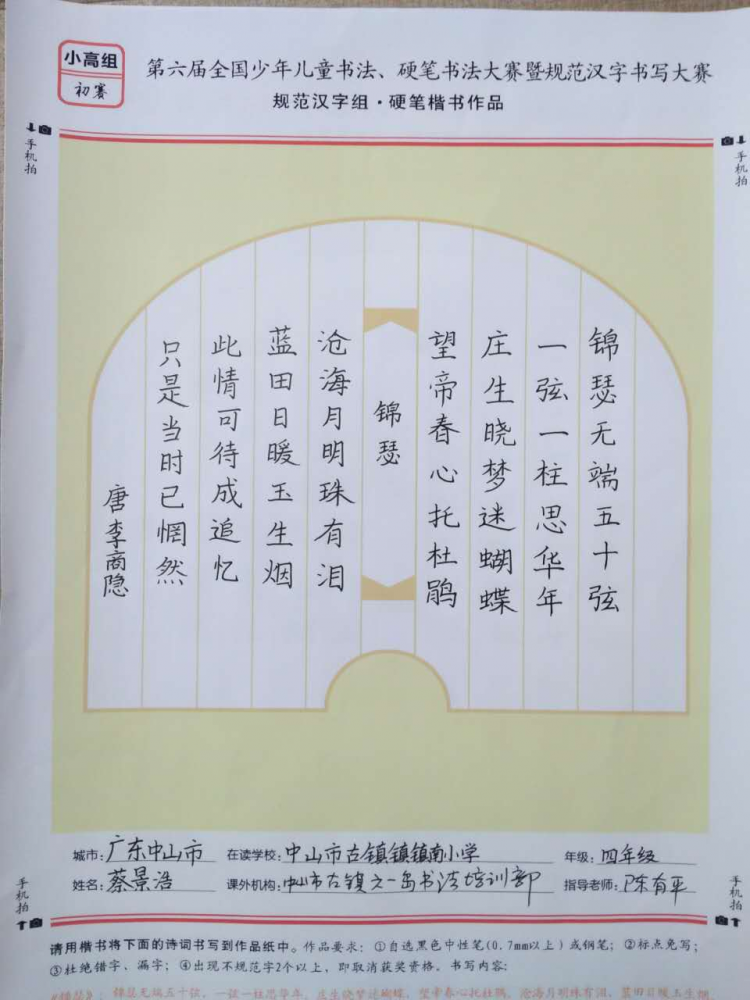 小高组
初赛
第六届全国少年儿童书法、硬笔书法大赛暨规范汉字书写大赛
规范汉字组·硬笔楷书作品
手机拍
手机拍
锦瑟无端五十弦
一弦一柱思华年
庄生晓梦迷蝴蝶
望帝春心托杜鹃
锦瑟
沧海月明珠有泪
蓝田日暖玉生烟
此情可待成追忆
只是当时已惘然
唐李商隐
城市:广东中山市 在读学校:中山市古镇镇镇南小学 年级:四年级
姓名:蔡景浩 课外机构:中山市古镇文一岛书法培训部 指导老师:陈有平
手机拍
手机拍
请用楷书将下面的诗词书写到作品纸中。作品要求:①自选黑色中性笔(0.7mm以上)或钢笔;②标点免写;
③杜绝错字、漏字;④出现不规范字2个以上,即取消获奖资格。书写内容:
《锦瑟》:锦瑟无端五十弦,一弦一柱思华年。庄生晓梦迷蝴蝶,望帝春心托杜鹃。沧海月明珠有泪,蓝田日暖玉生烟